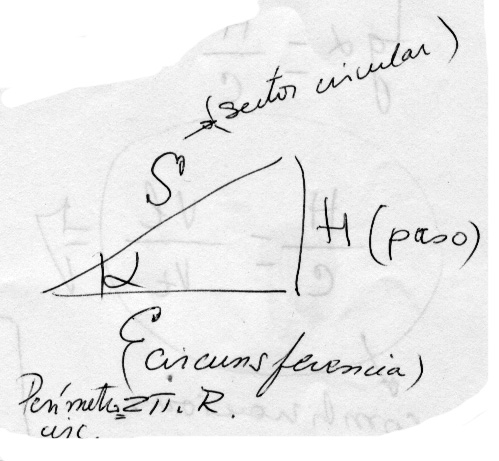 (sector circular)
S
H (paso)
α
C
(circunsferencia)
Perímetro = 2π.R.
circ.